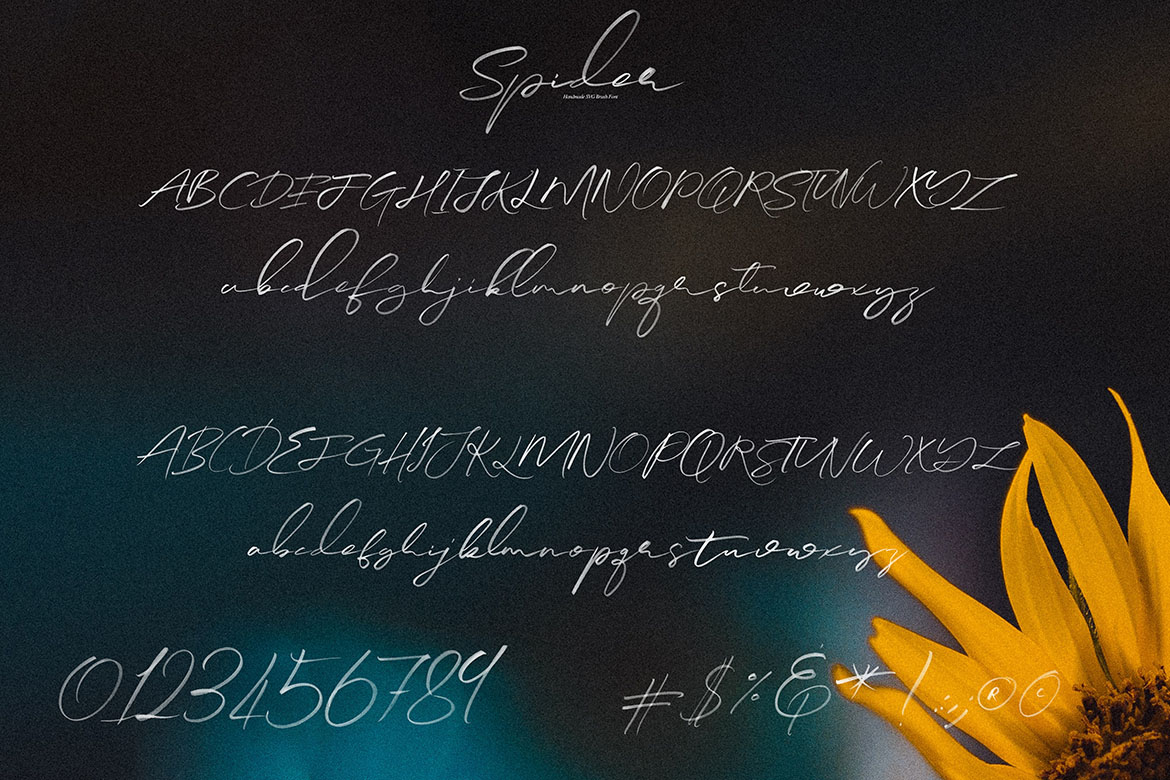 Spider
Handmade SVG Brush Font
ABCDEFGHIJKLMNOPQRSTUVWXYZ
abcdefghijklmnopqrstuvwxyz
ABCDEFGHIJKLMNOPQRSTUVWXYZ
abcdefghijklmnopqrstuvwxyz
0123456789
#$%&*!.:,;®©